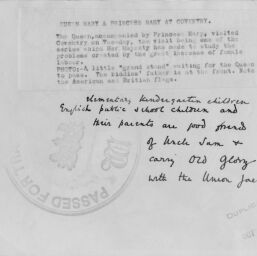 QUEEN MARY & PRINCESS MARY AT COVENTRY.
The Queen, accompanied by Princess Mary, visited
Coventry on Tuesday, the visit being one of the
series which Her Majesty has made to study the
problems created by the great increase of female
labour.
PHOTO:-A little "grand stand" waiting for the Queen
to pass. The kiddies' father is at the front. Note
the American and British flags.
Elementary kindergarten children
English public school children and
their parents are good friends
of Uncle Sam &
carry Old Glory
with the Union Jac
PASSED FOR
DUPLIC